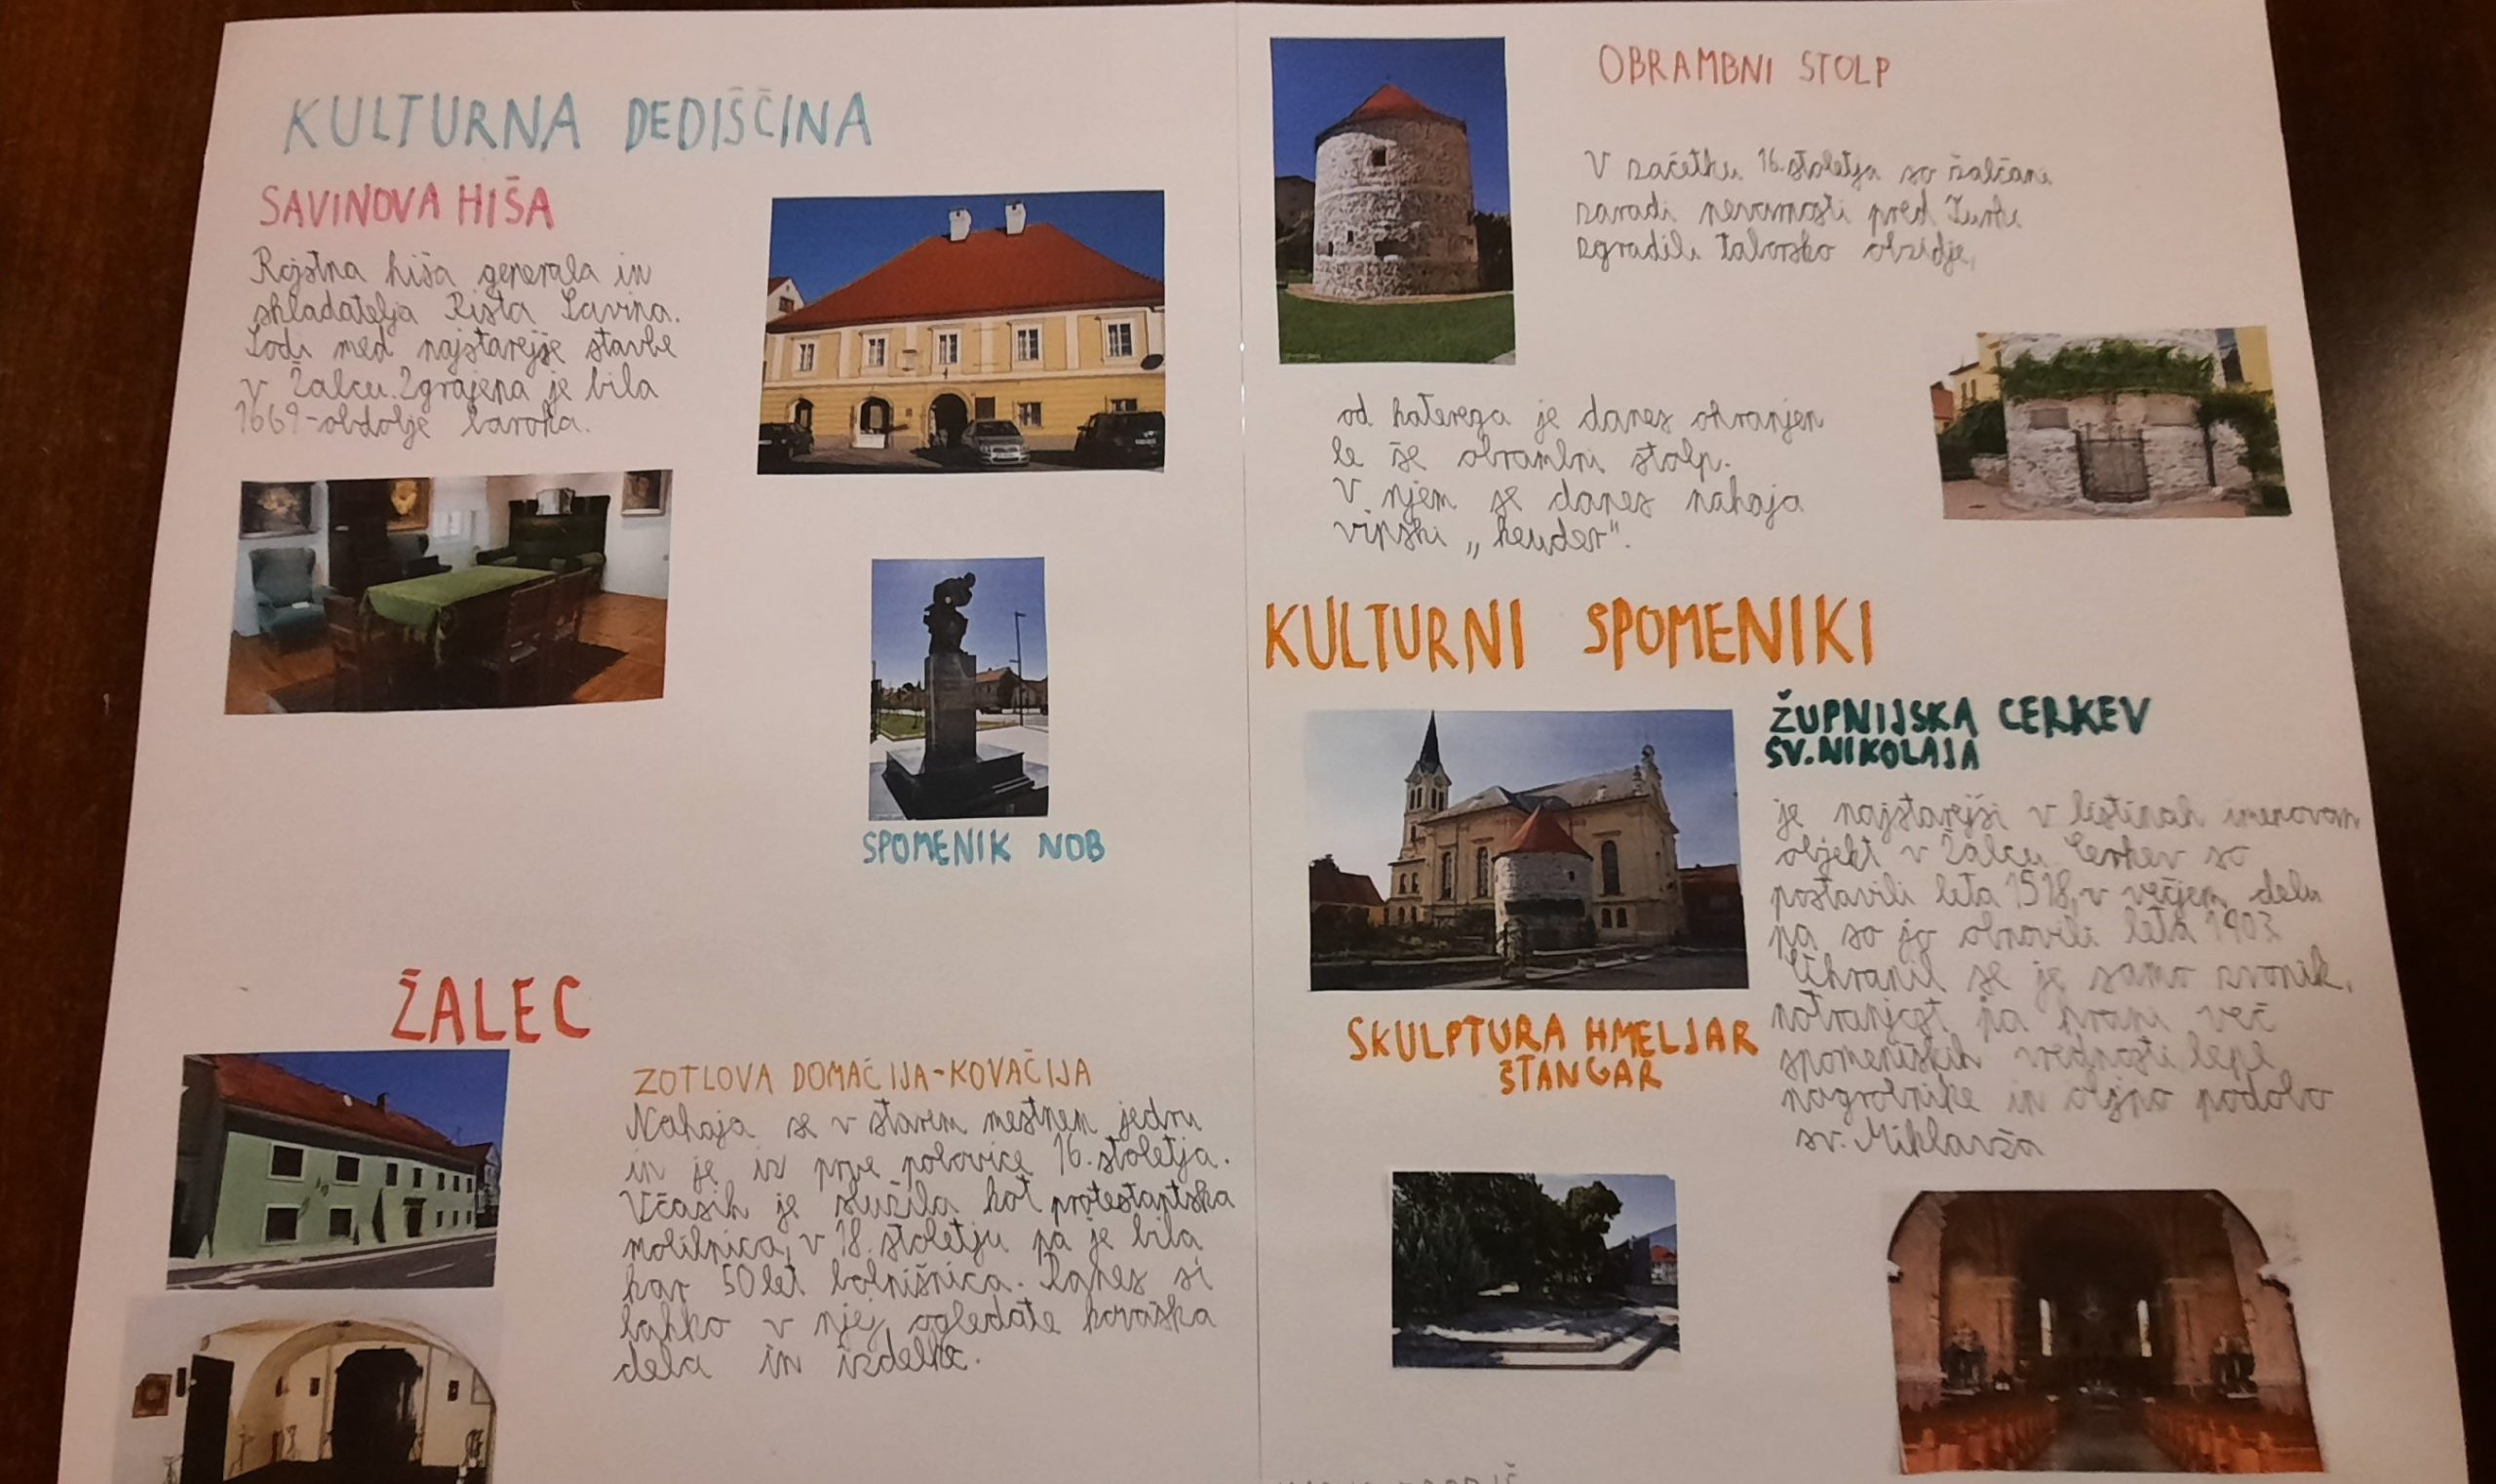 KULTURNA DEDIŠČINA
SAVINOVA HIŠA
Rojstna hiša generala in
skladatelja Rista Savina.
Sodi med najstarejše stavbe
v Žalcu. Zgrajena je bila
1669-obdobje baroka.
SPOMENIK NOB
ŽALEC
ZOTLOVA DOMAČIJA-KOVAČIJA
Nahaja se v starem mestnem jedru
in je iz prve polovice 16. stoletja.
Včasih je služila kot protestantska
molilnica, v 18. stoletju pa je bila
kar 50 let bolnišnica. Danes si
lahko v njej ogledate kovaška
dela in izdelke.
OBRAMBNI STOLP
V začetku 16. stoletja so žalčani
zaradi nevarnosti pred Turki
zgradili taborsko obzidje,
od katerega je danes ohranjen
le še obrambni stolp.
V njem se danes nahaja
vinski „keuder".
KULTURNI SPOMENIKI
ŽUPNIJSKA CERKEV
SV. NIKOLAJA
je najstarejši v listinah imenovan
objekt v Žalcu. Cerkev so
postavili leta 1518, v večjem delu
pa so jo obnovili leta 1903
Ohranil se je samo zvonik,
notranjost pa hrani več
spomeniških vrednosti lepe
nagrobnike in oljno podobo
sv. Miklavža
SKULPTURA HMELJAR
ŠTANGAR